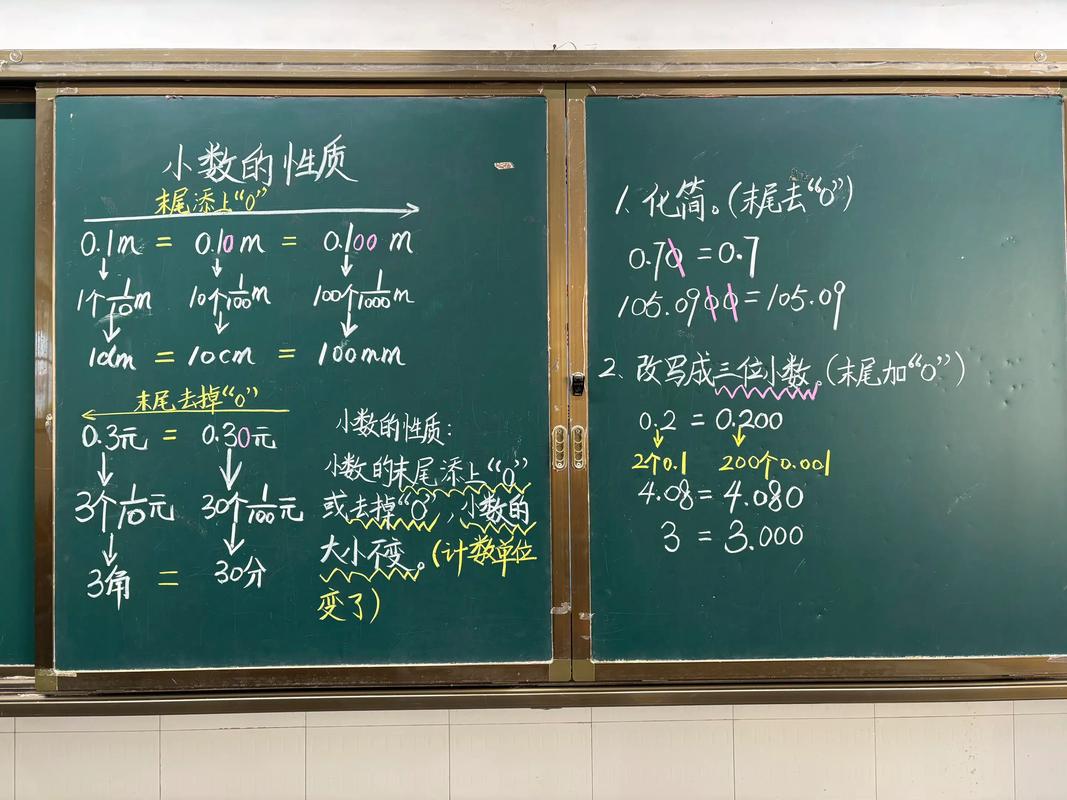 小数的性质
末尾添上“0”
0.1m = 0.10m = 0.100m
1个1/10m 10个1/100m 100个1/1000m
1dm = 10cm = 100mm
末尾去掉“0”
0.3元 = 0.30元
3个1/10元 30个1/100元
3角 = 30分
小数的性质:
小数的末尾添上“0”
或去掉“0”,小数的
大小不变。(计数单位
变了)
1、化简。(末尾去“0”)
0.70=0.7
105.0900=105.09
2、改写成三位小数。(末尾加“0”)
0.2 = 0.200
2个0.1 200个0.001
4.08=4.080
3 = 3.000